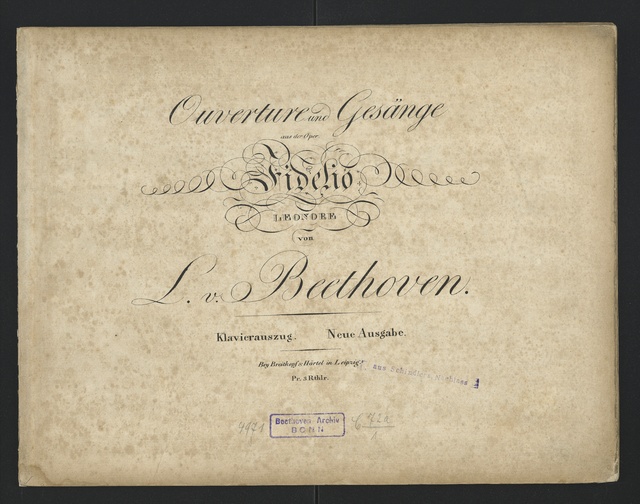 Ouverture und Gesänge
aus der Oper
Fidelio
LEONORE
von
L. v. Beethoven.
Klavierauszug. Neue Ausgabe.
Bey Breitkopf & Härtel in Leipzig.
Pr. 3 Rthlr.
aus Schindlers Nachlass
Beethoven Archiv
BONN